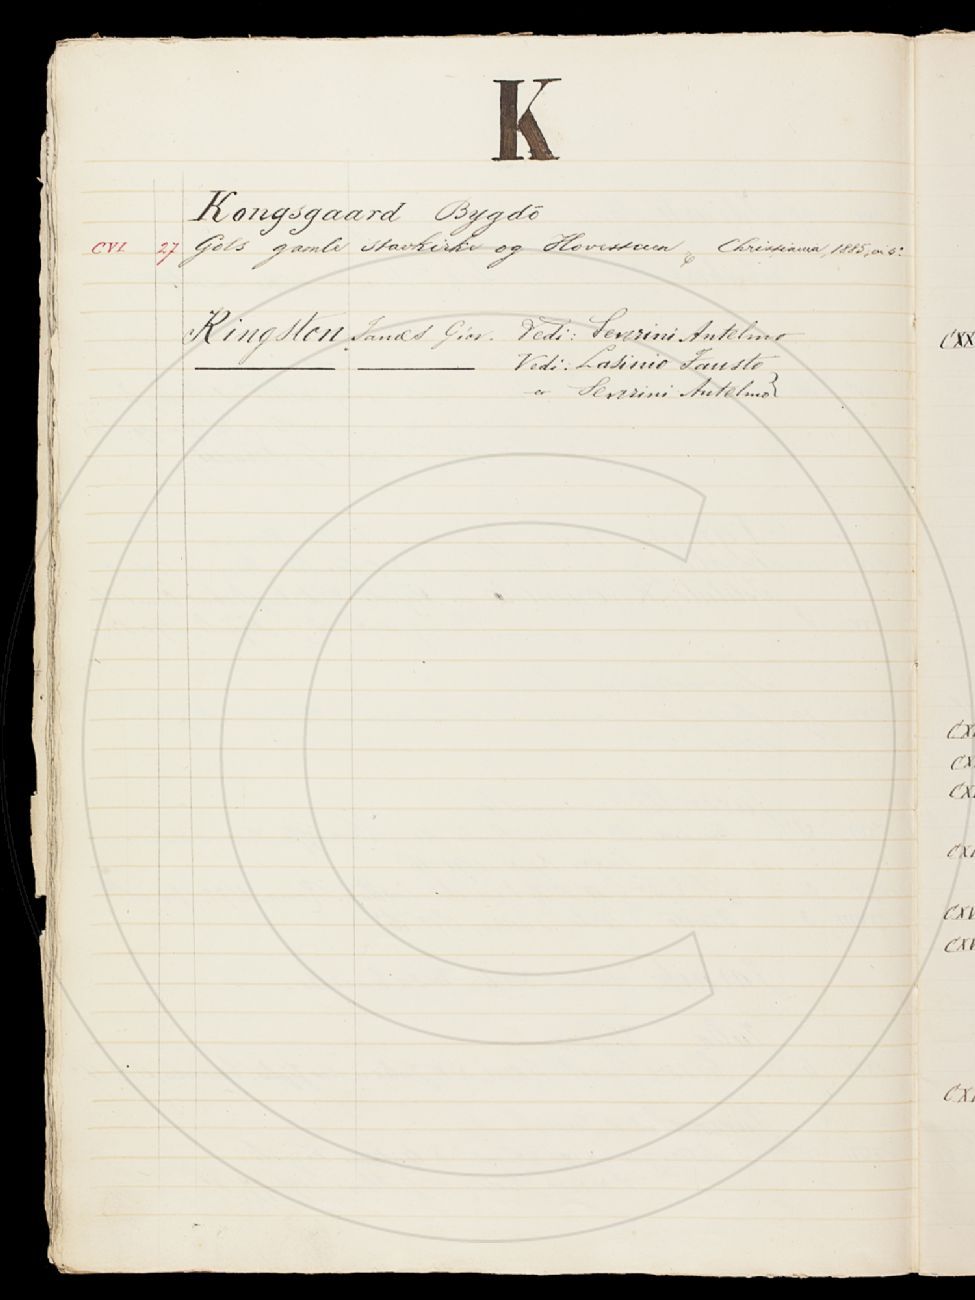 K
Kongsgaard Bygdö
CVI. 27 Gols gamle Stavkirke og Hovestuen, Christiania, 1885, in 8°
Kingston James Giov. Vedi: Severini Antelmo
Vedi: Lasinio Fausto
e Severini Antelmo
CXX
CX
CX
CX
CX
CXV
CXV
CX